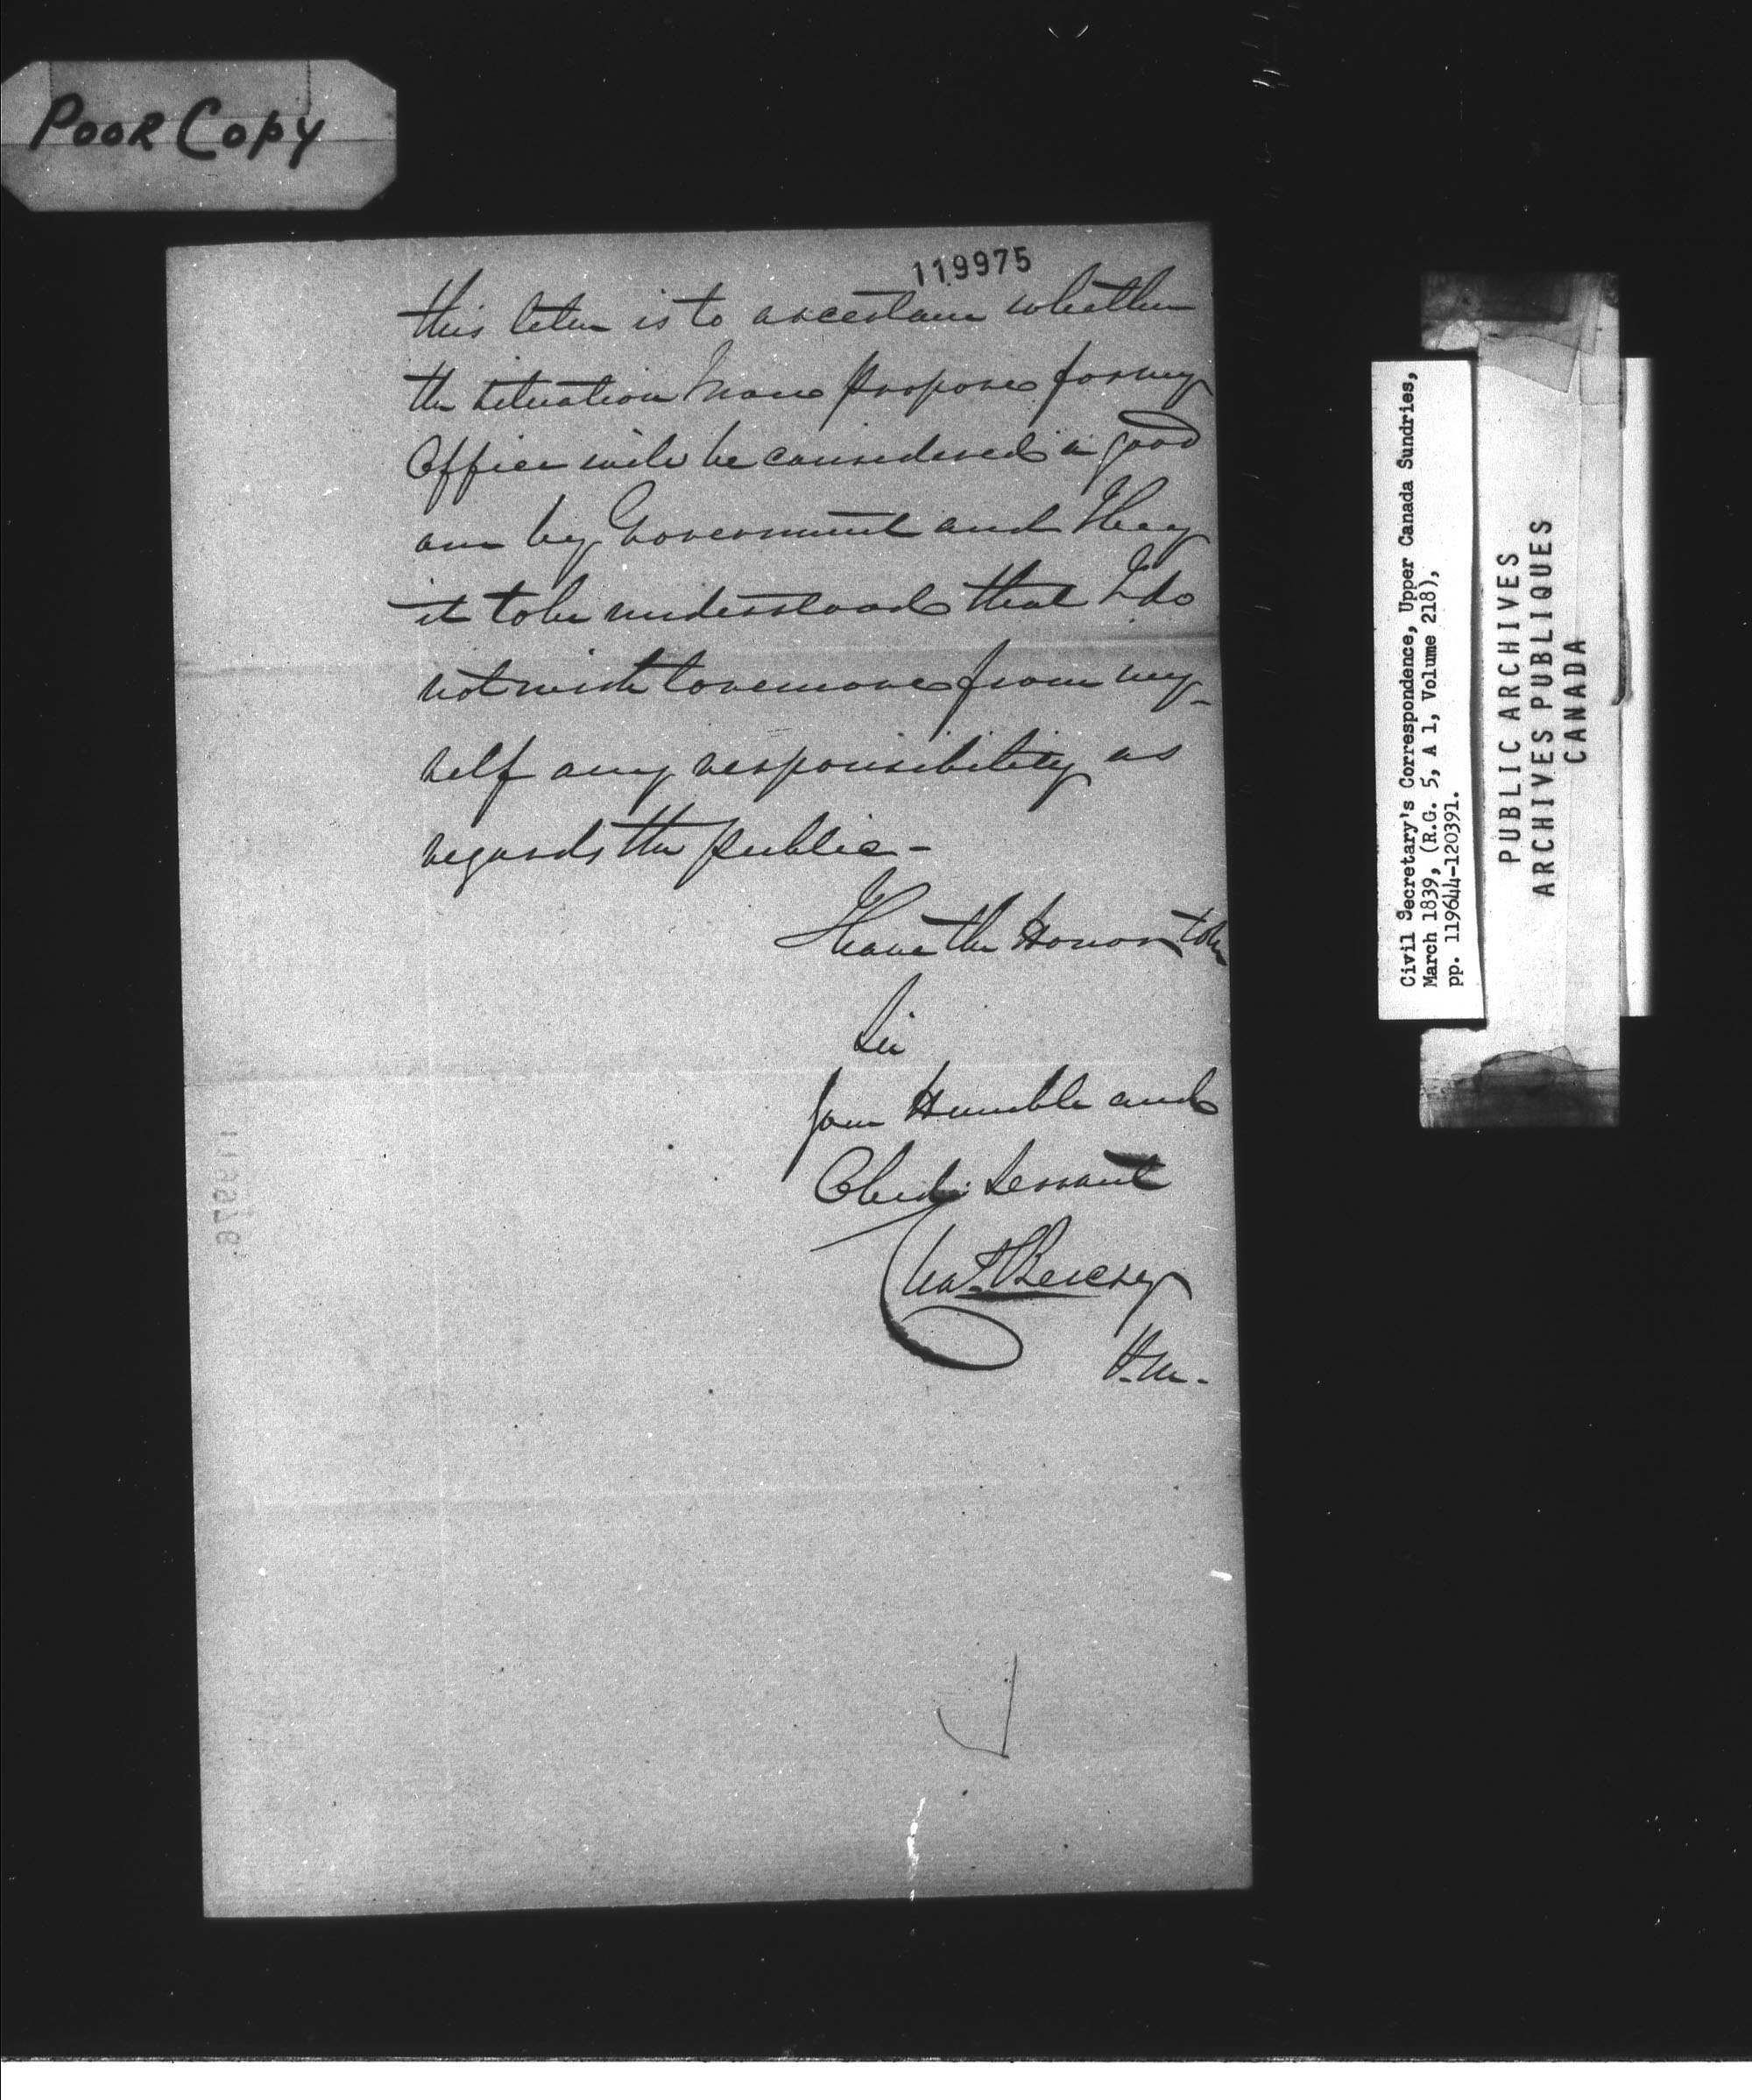 Poor Copy
119975
this letter is to ascertain whether
the situation I have proposed for my
Office will be considered a good
one by Government and I beg
it to be understood that I do
not wish to remove from my-
self any responsibility as
regards the public -
I have the Honor to be
Sir
Your Humble and
Obedt. Servant
Chas. Berczy
P.M.
Civil Secretary's Correspondence, Upper Canada Sundries,
March 1839, (R.G. 5, A 1, Volume 218),
pp. 119644-120391.
PUBLIC ARCHIVES
ARCHIVES PUBLIQUES
CANADA